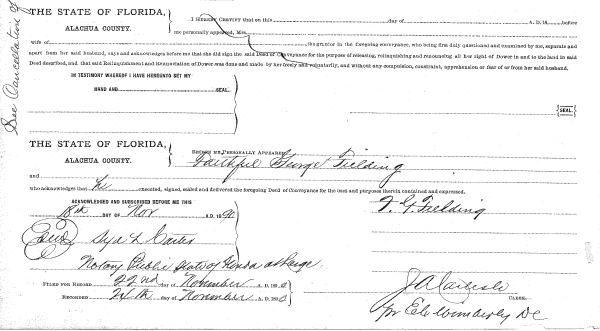 See Cancellation of
THE STATE OF FLORIDA,
ALACHUA COUNTY.
I HEREBY CERTIFY that on this day of A. D. 18 before
me personally appeared, Mrs.
wife of the grantor in the foregoing conveyance, who being first duly questioned and examined by me, separate and
apart from her said husband, says and acknowledges before me that she did sign the said Deed of Conveyance for the purpose of releasing, relinquishing and renouncing all her right of Dower in and to the land in said
Deed described, and that said Relinquishment and Renunciation of Dower was done and made by her freely and voluntarily, and without any compulsion, constraint, apprehension or fear of or from her said husband.
IN TESTIMONY WHEREOF I HAVE HEREUNTO SET MY
HAND AND SEAL.
SEAL.
THE STATE OF FLORIDA,
ALACHUA COUNTY.
BEFORE ME PERSONALLY APPEARED
Faithful George Fielding
and
who acknowledges that he executed, signed, sealed and delivered the foregoing Deed of Conveyance for the uses and purposes therein contained and expressed.
ACKNOWLEDGED AND SUBSCRIBED BEFORE ME THIS
18th DAY OF Nov A. D. 18
F. G. Fielding
Notary Public State of Florida at Large
FILED FOR RECORD 22nd day of November A.D. 189
RECORDED 24th day of November A.D. 189
J A Carlisle
CLERK.
pr E. C. Wimberly DC